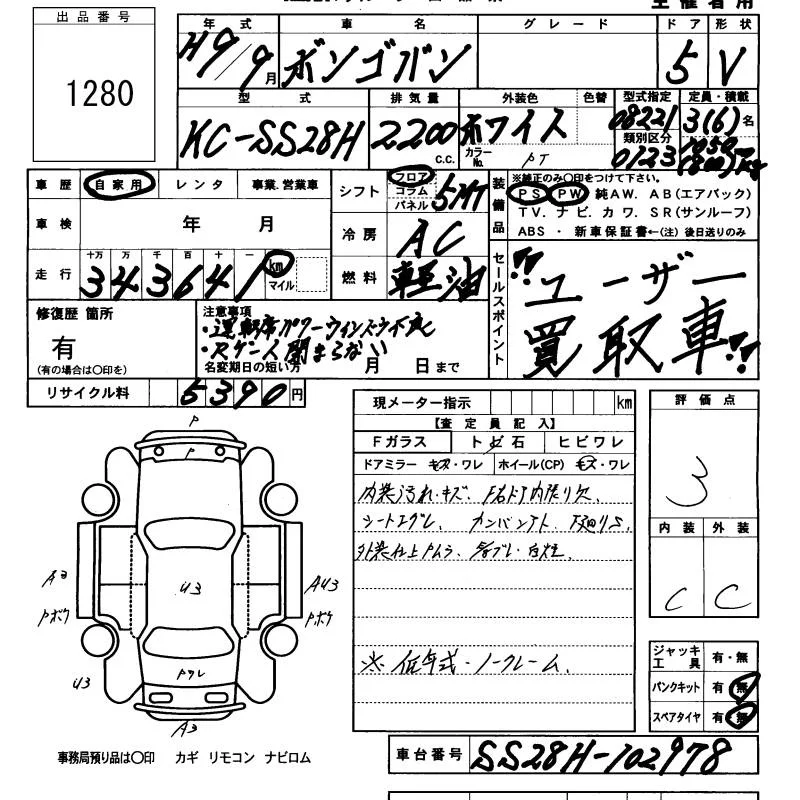 主催者用
出品番号
1280
年式 車名 グレード ドア 形状
H9/9月 ボンゴバン 5 V
型式 排気量 外装色 色替 型式指定 定員・積載
KC-SS28H 2200 c.c. ホワイト 08221 3(6)名
カラーNo. PT 類別区分 0123 1050(800)kg
車歴 自家用 レンタ 事業.営業車
シフト フロア コラム パネル 5MT
装備品
※純正のみ〇印をつけて下さい。
PS PW 純AW. AB(エアバック)
TV. ナビ. カワ. SR(サンルーフ)
ABS ・ 新車保証書←(注) 後日送りのみ
車検 年 月
冷房 AC
走行 十万 万 千 百 十 一
343641 km マイル
燃料 軽油
セールスポイント
!!ユーザー
買取車!!
修復歴 箇所
有
(有の場合は〇印を)
注意事項
・運転席パワーウィンドウ不良
名変期日の短い方 月 日まで
リサイクル料 5390円
現メーター指示 km
【査定員記入】
Fガラス トビ石 ヒビワレ
ドアミラー キズ・ワレ ホイール(CP) キズ・ワレ
内装汚れ・キズ. F右ドア内張り欠.
シートコゲレ. カンバンアト. 下廻りS.
外装仕上Pムラ.
※ 低年式・ノークレーム.
評価点
3
内装 外装
C C
ジャッキ工具 有・無
パンクキット 有・無
スペアタイヤ 有・無
P
P
A3
U3
AU3
Pボケ
Pボケ
U3
Pワレ
A3
事務局預り品は〇印 カギ リモコン ナビロム
車台番号 SS28H-102978